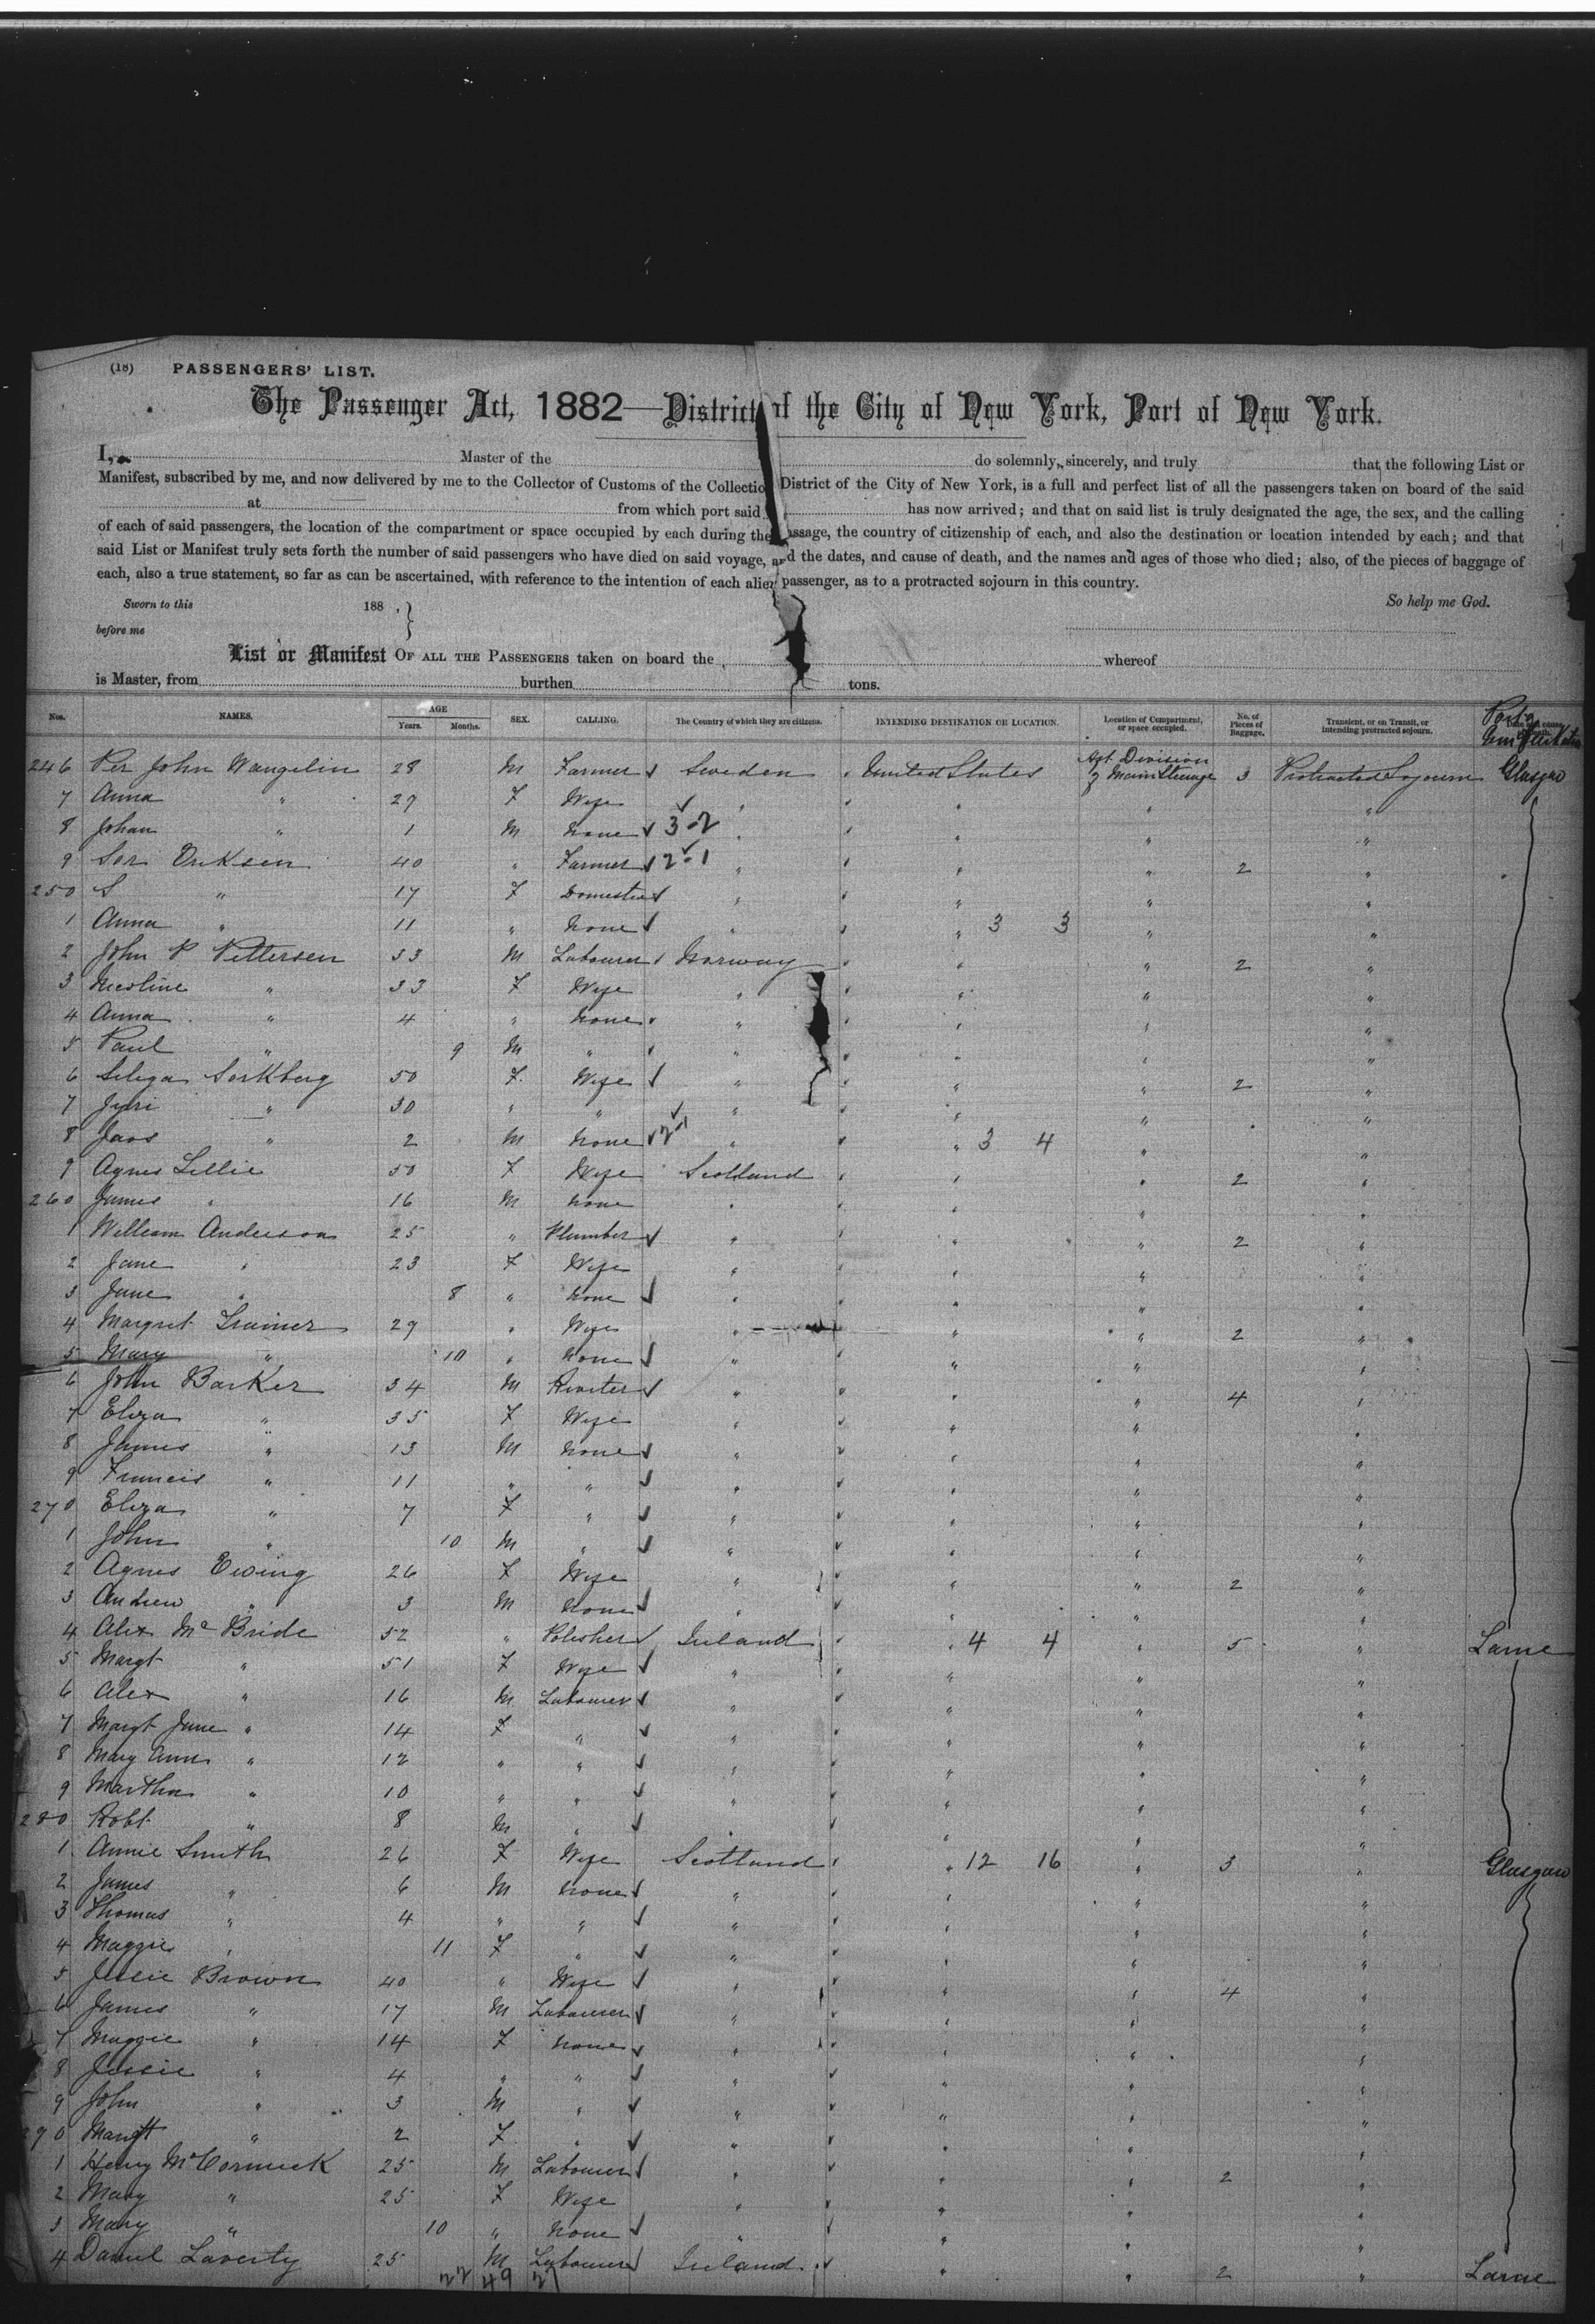 (18) PASSENGERS' LIST.
The Passenger Act, 1882—District of the City of New York, Port of New York.
I, Master of the do solemnly, sincerely, and truly that the following List or
Manifest, subscribed by me, and now delivered by me to the Collector of Customs of the Collectio District of the City of New York, is a full and perfect list of all the passengers taken on board of the said
at from which port said has now arrived; and that on said list is truly designated the age, the sex, and the calling
of each of said passengers, the location of the compartment or space occupied by each during the passage, the country of citizenship of each, and also the destination or location intended by each; and that
said List or Manifest truly sets forth the number of said passengers who have died on said voyage, and the dates, and cause of death, and the names and ages of those who died; also, of the pieces of baggage of
each, also a true statement, so far as can be ascertained, with reference to the intention of each alien passenger, as to a protracted sojourn in this country.
Sworn to this 188 . } So help me God.
before me
List or Manifest OF ALL THE PASSENGERS taken on board the whereof
is Master, from burthen tons.
Nos. NAMES. AGE Years. Months. SEX. CALLING. The Country of which they are citizens. INTENDING DESTINATION OR LOCATION. Location of Compartment, or space occupied. No. of Pieces of Baggage. Transient, or on Transit, or intending protracted sojourn. Port of
246 Per John Wangelin 28 M Farmer Sweden United States Aft Division 2 Main Steerage 3 Protracted Sojourn Glasgow
7 Anna " 27 F Wife " " " "
8 Johan " 1 M None 3-2 " " " "
9 Sor Eriksen 40 " Farmer 2-1 " " " 2 "
250 S " 17 F Domestic " " " "
1 Anna " 11 " None " " 3 3 " "
2 John P Pettersen 33 M Labourer Norway " " 2 "
3 Nicoline " 33 F Wife " " " "
4 Anna " 4 " None " " " "
5 Paul " 9 M " " " " "
6 Serkberg 50 F Wife " " " 2 "
7 " 30 " " " " " "
8 " 2 M None 2-1 " " 3 4 " "
9 Agnes Lillie 50 F Wife Scotland " " 2 "
260 James " 16 M None " " " "
1 William Anderson 25 " Plumber " " " 2 "
2 Jane " 23 F Wife " " " "
3 Jane " 8 " None " " " "
4 Margret Trainer 29 " Wife " " " 2 "
5 Mary " 10 " None " " " "
6 John Barker 34 M Riveter " " " 4 "
7 Eliza " 35 F Wife " " " "
8 James " 13 M None " " " "
9 Francis " 11 " " " " " "
270 Eliza " 7 F " " " " "
1 John " 10 M " " " " "
2 Agnes Ewing 26 F Wife " " " 2 "
3 Andrew " 3 M None " " " "
4 Alex McBride 52 " Polisher Ireland " 4 4 " 5 " Larne
5 Margt " 51 F Wife " " " "
6 Alex " 16 M Labourer " " " "
7 Margt Jane " 14 F " " " " "
8 Mary Ann " 12 " " " " " "
9 Martha " 10 " " " " " "
280 Robt " 8 M " " " " "
1 Annie Smith 26 F Wife Scotland " 12 16 " 3 " Glasgow
2 James " 6 M None " " " "
3 Thomas " 4 " " " " " "
4 Maggie " 11 F " " " " "
5 Jessie Brown 40 " Wife " " " 4 "
6 James " 17 M Labourer " " " "
7 Maggie " 14 F None " " " "
8 Jessie " 4 " " " " " "
9 John " 3 M " " " " "
290 Margt " 2 F " " " " "
1 Henry McCormick 25 M Labourer " " " 2 "
2 Mary " 25 F Wife " " " "
3 Mary " 10 " None " " " "
4 Daniel Laverty 25 M Labourer Ireland " " 2 " Larne
22 49 27